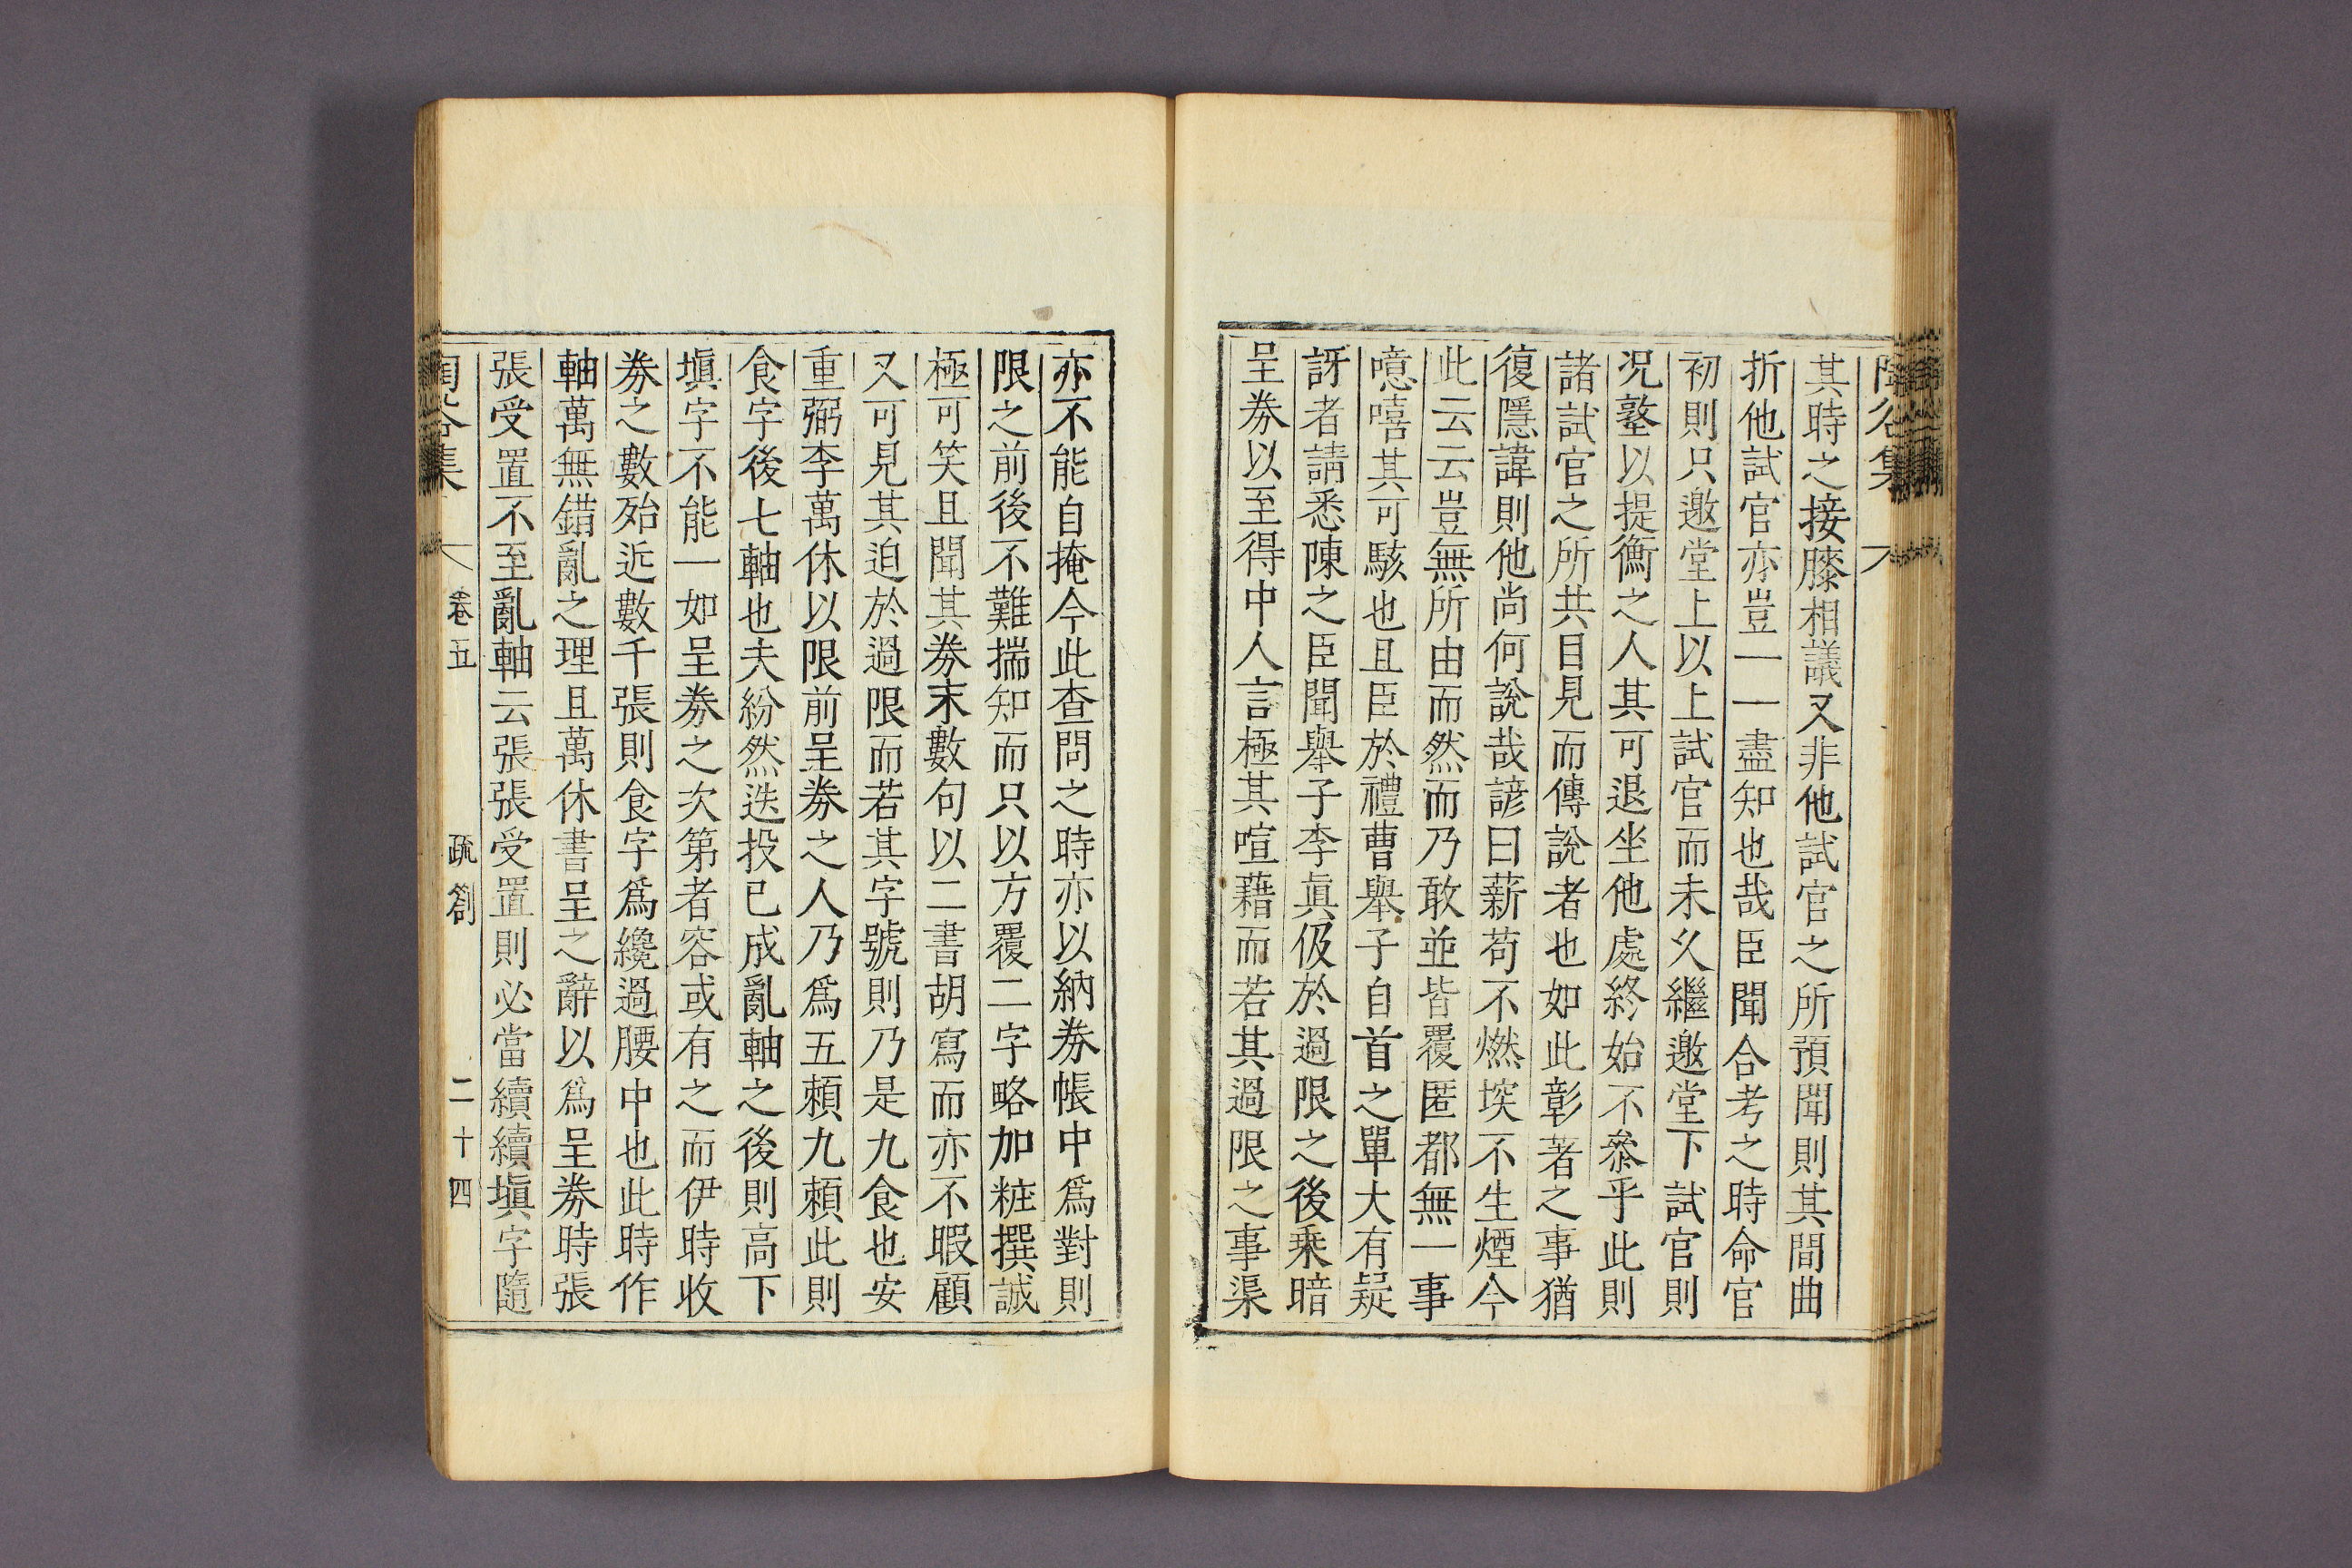 陶谷集
其時之接膝相議又非他試官之所預聞則其間曲
折他試官亦豈一一盡知也哉臣聞合考之時命官
初則只邀堂上以上試官而未久繼邀堂下試官則
况塾以提衡之人其可退坐他處終始不叅乎此則
諸試官之所共目見而傳說者也如此彰著之事猶
復隱諱則他尚何說哉諺曰薪苟不燃埃不生煙今
此云云豈無所由而然而乃敢並皆覆匿都無一事
噫嘻其可駭也且臣於禮曹舉子自首之單大有疑
訝者請悉陳之臣聞舉子李眞伋於過限之後乗暗
呈券以至得中人言極其喧藉而若其過限之事渠
亦不能自掩今此查問之時亦以納券帳中爲對則
限之前後不難揣知而只以方覆二字略加粧撰誠
極可笑且聞其券末數句以二書胡寫而亦不暇顧
又可見其迫於過限而若其字號則乃是九食也安
重弼李萬休以限前呈券之人乃爲五賴九賴此則
食字後七軸也夫紛然迭投已成亂軸之後則高下
塡字不能一如呈券之次第者容或有之而伊時收
券之數殆近數千張則食字爲纔過腰中也此時作
軸萬無錯亂之理且萬休書呈之辭以爲呈券時張
張受置不至亂軸云張張受置則必當續續塡字隨
陶谷集 卷五 疏劄 二十四